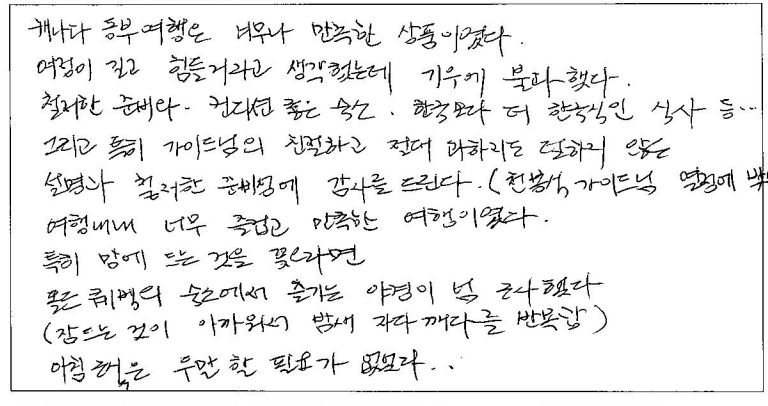 캐나다 동부여행은 너무나 만족한 상품이였다.
여정이 길고 힘들거라고 생각했는데 기우에 불과했다.
철저한 준비와. 컨디션 좋은 숙소. 한국보다 더 한국식인 식사 등...
그리고 특히 가이드님의 친절하고 절대 과하지도 덜하지 않는
설명과 철저한 준비성에 감사를 드린다. (천봉석 가이드님 열정에
여행내내 너무 즐겁고 만족한 여행이였다.
특히 맘에 드는 것을 꼽으라면
몽든 퀘벡의 숙소에서 즐기는 야경이 넘 근사했다
(잠드는 것이 아까워서 밤새 자다깨다를 반복함)
아침 은 두말 할 필요가 없었다..